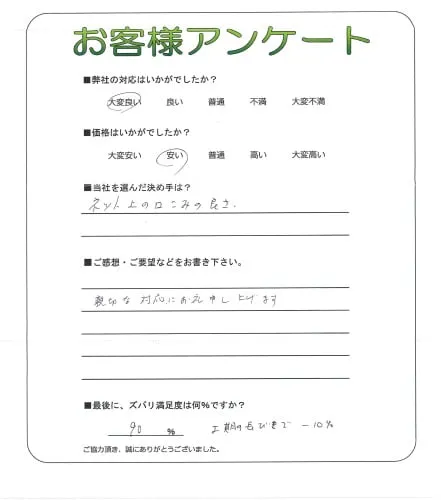 お客様アンケート
■弊社の対応はいかがでしたか？
大変良い 良い 普通 不満 大変不満
■価格はいかがでしたか？
大変安い 安い 普通 高い 大変高い
■当社を選んだ決め手は？
ネット上の口こみの良さ.
■ご感想・ご要望などをお書き下さい。
親切な対応にお礼申し上げます
■最後に、ズバリ満足度は何％ですか？
90 ％ 工期の長びきで －10％
ご協力頂き、誠にありがとうございました。